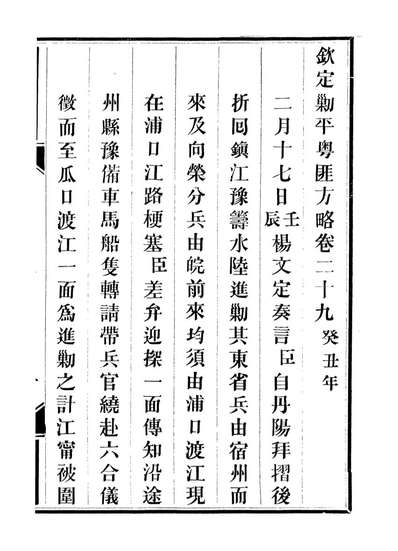 欽定勦平粤匪方略卷二十九 癸丑年
二月十七日壬辰楊文定奏言臣自丹陽拜摺後
折囘鎭江豫籌水陸進勦其東省兵由宿州而
來及向榮分兵由皖前來均須由浦口渡江現
在浦口江路梗塞臣差弁迎探一面傳知沿途
州縣豫備車馬船隻轉請帶兵官繞赴六合儀
徵而至瓜口渡江一面爲進勦之計江甯被圍